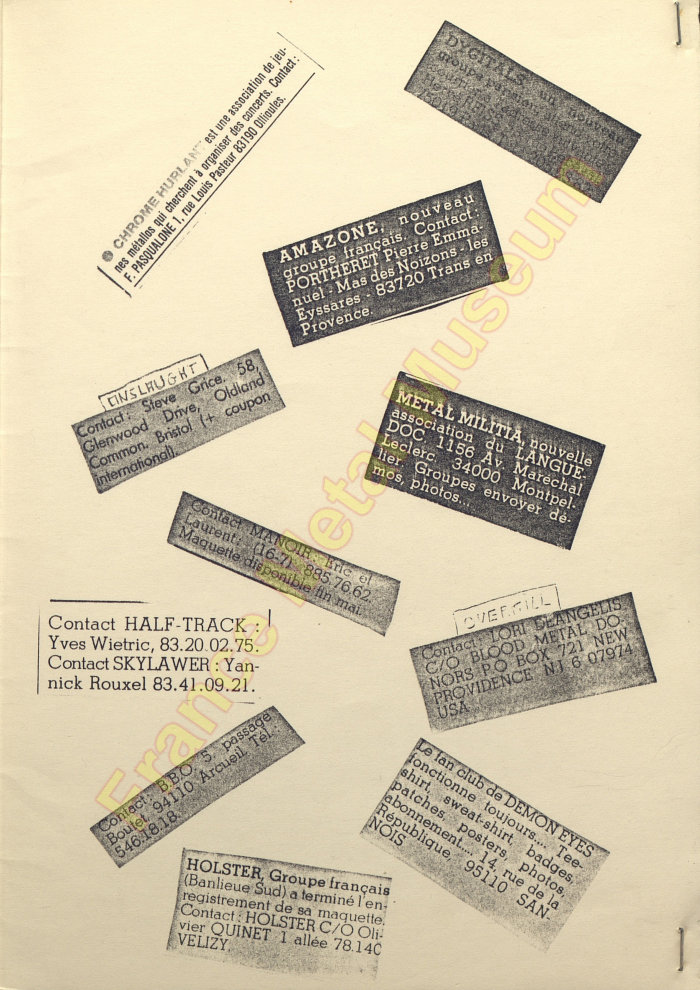 CHROME HURLANT est une association de jeu-
nes métallos qui cherchent à organiser des concerts. Contact :
F. PASQUALONE 1, rue Louis Pasteur 83190 Ollioules.
DYGITALS un nouveau
AMAZONE, nouveau
groupe français. Contact :
PORTHERET Pierre Emma-
nuel - Mas des Noizons - les
Eyssares - 83720 Trans en
Provence.
ONSLAUGHT
Contact : Steve Grice, 58,
Glenwood Drive, Oldland
Common, Bristol (+ coupon
international).
METAL MILITIA, nouvelle
association du LANGUE-
DOC 1156 Av. Maréchal
Leclerc, 34000 Montpel-
lier. Groupes envoyer dé-
mos, photos...
Contact MANOIR : Eric et
Laurent : (16-7) 885.76.62.
Maquette disponible fin mai.
Contact HALF-TRACK :
Yves Wietric, 83.20.02.75.
Contact SKYLAWER : Yan-
nick Rouxel 83.41.09.21.
OVERGILL
Contact : LORI DEANGELIS
C/O BLOOD METAL DO-
NORS P.O BOX 721 NEW
PROVIDENCE NJ 6 07974
USA
Contact : B.B.O. 5, passage
Boulet, 94110 Arcueil. Tél.
546.18.18.
Le fan club de DEMON EYES
fonctionne toujours... Tee-
shirt, sweat-shirt, badges,
patches, posters, photos,
abonnement... 14, rue de la
République 95110 SAN-
NOIS
HOLSTER, Groupe français
(Banlieue Sud) a terminé l'en-
registrement de sa maquette.
Contact : HOLSTER C/O Oli-
vier QUINET 1 allée 78.140
VELIZY.
France Metal Museum